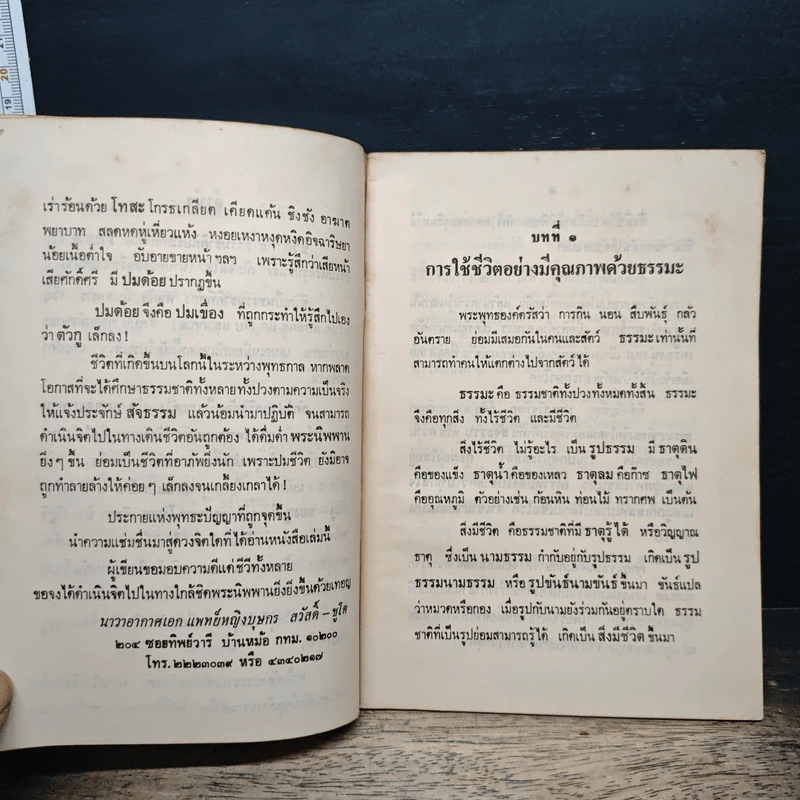 เร่าร้อนด้วย โทสะ โกรธเกลียด เคียดแค้น ชิงชัง อาฆาต
พยาบาท สลดหดหู่เหี่ยวแห้ง หงอยเหงาหงุดหงิดอิจฉาริษยา
น้อยเนื้อต่ำใจ อับอายขายหน้า ฯลฯ เพราะรู้สึกว่าเสียหน้า
เสียศักดิ์ศรี มี ปมด้อย ปรากฏขึ้น
ปมด้อย จึงคือ ปมเขื่อง ที่ถูกกระทำให้รู้สึกไปเอง
ว่า ตัวกู เล็กลง !
ชีวิตที่เกิดขึ้นบนโลกนี้ในระหว่างพุทธกาล หากพลาด
โอกาสที่จะได้ศึกษาธรรมชาติทั้งหลายทั้งปวงตามความเป็นจริง
ให้แจ้งประจักษ์ สัจธรรม แล้วน้อมนำมาปฏิบัติ จนสามารถ
ดำเนินจิตไปในทางเดินชีวิตอันถูกต้อง ได้ดื่มด่ำ พระนิพพาน
ยิ่งๆ ขึ้น ย่อมเป็นชีวิตที่อาภัพยิ่งนัก เพราะปมชีวิต ยังมิอาจ
ถูกทำลายล้างให้ค่อย ๆ เล็กลงจนเกลี้ยงเกลาได้ !
ประกายแห่งพุทธะปัญญาที่ถูกจุดขึ้น
นำความแช่มชื่นมาสู่ดวงจิตใดที่ได้อ่านหนังสือเล่มนี้
ผู้เขียนขอมอบความดีแด่ชีวีทั้งหลาย
ขอจงได้ดำเนินจิตไปในทางใกล้ชิดพระนิพพานยิ่งยิ่งขึ้นด้วยเทอญ
นาวาอากาศเอก แพทย์หญิงบุษกร สวัสดิ์-ชูโต
๒๐๔ ซอยทิพย์วารี บ้านหม้อ กทม. ๑๐๒๐๐
โทร. ๒๒๒๓๐๓๙ หรือ ๔๓๔๐๒๑๗
บทที่ ๑
การใช้ชีวิตอย่างมีคุณภาพด้วยธรรมะ
พระพุทธองค์ตรัสว่า การกิน นอน สืบพันธุ์ กลัว
อันตราย ย่อมมีเสมอกันในคนและสัตว์ ธรรมะ เท่านั้นที่
สามารถทำคนให้แตกต่างไปจากสัตว์ได้
ธรรมะ คือ ธรรมชาติทั้งปวงทั้งหมดทั้งสิ้น ธรรมะ
จึงคือทุกสิ่ง ทั้งไร้ชีวิต และมีชีวิต
สิ่งไร้ชีวิต ไม่รู้อะไร เป็น รูปธรรม มี ธาตุดิน
คือของแข็ง ธาตุน้ำ คือของเหลว ธาตุลม คือก๊าซ ธาตุไฟ
คืออุณหภูมิ ตัวอย่างเช่น ก้อนหิน ท่อนไม้ ทรากศพ เป็นต้น
สิ่งมีชีวิต คือธรรมชาติที่มี ธาตุรู้ ได้ หรือวิญญาณ
ธาตุ ซึ่งเป็น นามธรรม กำกับอยู่กับรูปธรรม เกิดเป็น รูป
ธรรมนามธรรม หรือ รูปขันธ์นามขันธ์ ขึ้นมา ขันธ์แปล
ว่าหมวดหรือกอง เมื่อรูปกับนามยังร่วมกันอยู่ตราบใด ธรรม
ชาติที่เป็นรูปย่อมสามารถรู้ได้ เกิดเป็น สิ่งมีชีวิต ขึ้นมา
19
20
21